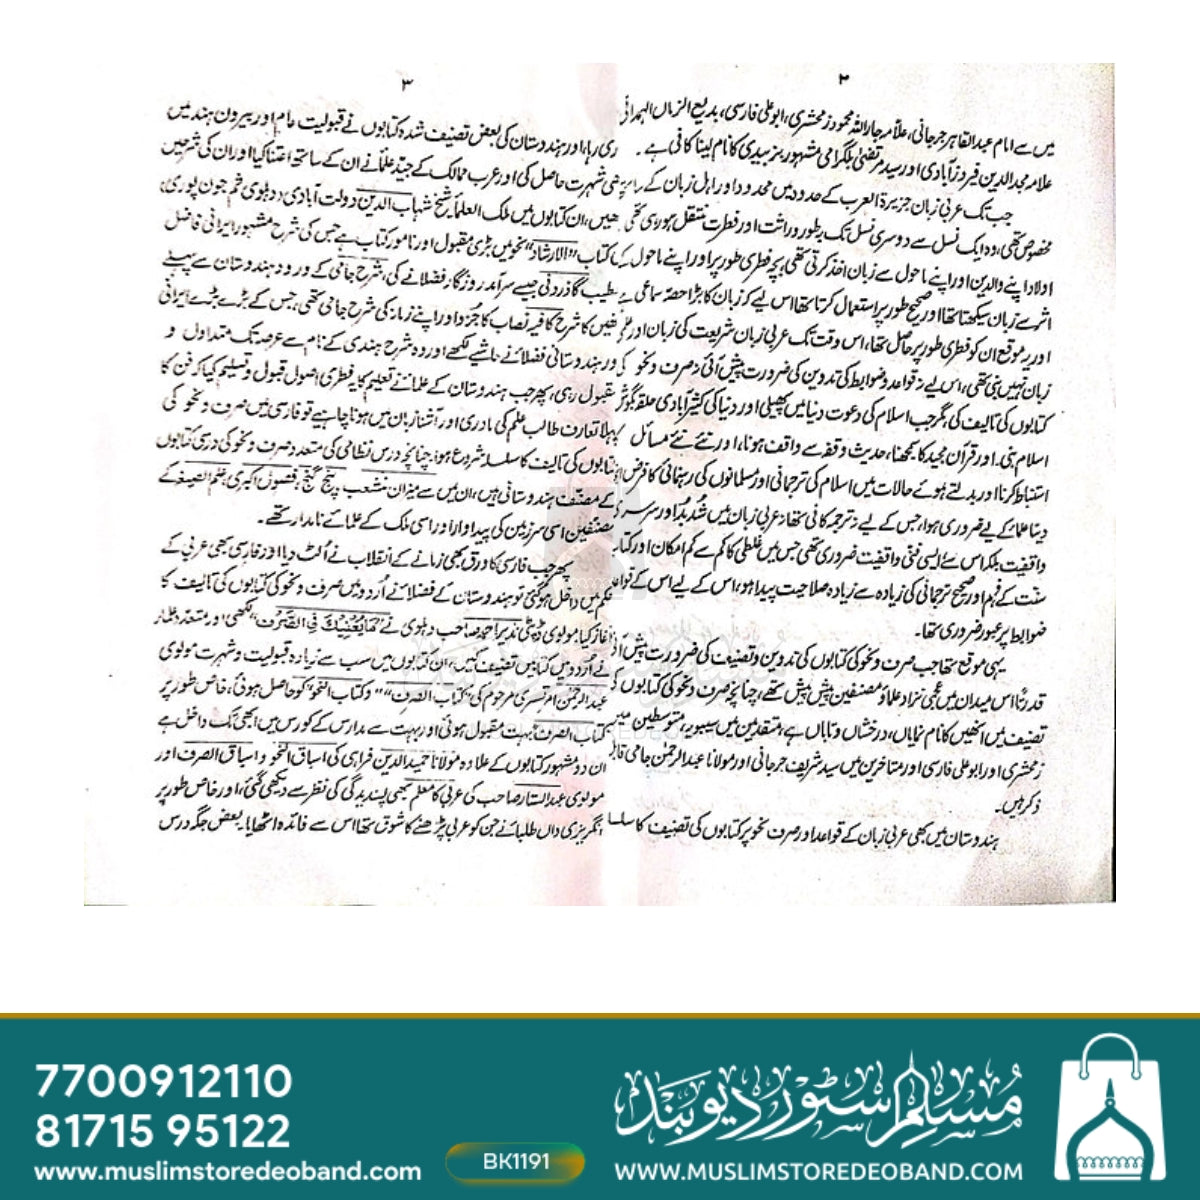 ۲
میں سے امام عبدالقاہر جرجانی، علامہ جاراللہ محمود زمخشری، ابوعلی فارسی، بدیع الزماں الہمدانی
علامہ مجدالدین فیروزآبادی اور سید مرتضیٰ بلگرامی مشہور بہ زبیدی کا نام لینا کافی ہے۔
جب تک عربی زبان جزیرۃ العرب کے حدود میں محدود اور اہل زبان کے
مخصوص تھی، وہ ایک نسل سے دوسری نسل تک بطور وراثت اور فطرت منتقل ہو رہی تھی
اولاد اپنے والدین اور اپنے ماحول سے زبان اخذ کرتی تھی، بچہ فطری طور پر اور اپنے ماحول کے
اثر سے زبان سیکھتا تھا اور صحیح طور پر استعمال کرتا تھا اس لیے کہ زبان کا بڑا حصہ سماعی ہے
اور یہ موقع ان کو فطری طور پر حاصل تھا، اس وقت تک عربی زبان شریعت کی زبان اور علم
زبان نہیں بنی تھی، اس لیے نہ قواعد و ضوابط کی تدوین کی ضرورت پیش آئی نہ صرف و نحو کی
کتابوں کی تالیف کی، مگر جب اسلام کی دعوت دنیا میں پھیلی اور دنیا کی کثیر آبادی حلقہ بگوش
اسلام بنی۔ اور قرآن مجید کا سمجھنا، حدیث و فقہ سے واقف ہونا، اور نئے نئے مسائل کا
استنباط کرنا اور بدلتے ہوئے حالات میں اسلام کی ترجمانی اور مسلمانوں کی رہنمائی کا فرض
دینا علما کے لیے ضروری ہوا، جس کے لیے نہ ترجمہ کافی تھا نہ عربی زبان میں شُد بُد اور سرسری
واقفیت بلکہ اس سے ایسی فنی واقفیت ضروری تھی جس میں غلطی کا کم سے کم امکان اور کتاب
سنت کے فہم اور صحیح ترجمانی کی زیادہ سے زیادہ صلاحیت پیدا ہو، اس کے لیے اس کے قواعد
ضوابط پر عبور ضروری تھا۔
یہی موقع تھا جب صرف و نحو کی کتابوں کی تدوین و تصنیف کی ضرورت پیش آئی
قدرتاً اس میدان میں عجمی نژاد علما و مصنفین پیش پیش تھے، چنانچہ صرف و نحو کی کتابوں کی
تصنیف میں انھیں کا نام نمایاں، درخشاں و تاباں ہے، متقدمین میں سیبویہ، متوسطین میں
زمخشری اور ابوعلی فارسی اور متاخرین میں سید شریف جرجانی اور مولانا عبدالرحمٰن جامی قابل
ذکر ہیں۔
ہندوستان میں بھی عربی زبان کے قواعد اور صرف نحو پر کتابوں کی تصنیف کا سلسلہ
۳
ری رہا، اور ہندوستان کی بعض تصنیف شدہ کتابوں نے قبولیت عام اور بیرون ہند میں
بھی شہرت حاصل کی اور عرب ممالک کے جید علما نے ان کے ساتھ اعتنا کیا اور ان کی شرحیں
ہیں، ان کتابوں میں ملک العلماء شیخ شہاب الدین دولت آبادی، دہلوی ثم جون پوری،
کی کتاب "الارشاد" نحو میں بڑی مقبول اور نامور کتاب ہے جس کی شرح مشہور ایرانی فاضل
خطیب گاذرونی جیسے سرآمد روزگار فضلا نے کی، شرح جامی کے ورود ہندوستان سے پہلے
انھیں کا شرح کافیہ نصاب کا جُزو اور اپنے زمانہ کی شرح جامی تھی، جس کے بڑے بڑے ایرانی
اور ہندوستانی فضلا نے حاشیے لکھے اور وہ شرح ہندی کے نام سے عرصہ تک متداول و
مقبول رہی، پھر جب ہندوستان کے علما نے تعلیم کا یہ فطری اصول قبول و تسلیم کیا کہ فن کا
پہلا تعارف طالب علم کی مادری اور آشنا زبان میں ہونا چاہیے تو فارسی میں صرف و نحو کی
کتابوں کی تالیف کا سلسلہ شروع ہوا، چنانچہ درس نظامی کی متعدد صرف و نحو کی درسی کتابوں
کے مصنف ہندوستانی ہیں، ان میں سے میزان منشعب، پنج گنج، فصول اکبری، علم الصیغہ کے
مصنفین اسی سرزمین کی پیداوار اور اسی ملک کے علمائے نامدار تھے۔
پھر جب فارسی کا ورق بھی زمانے کے انقلاب نے اُلٹ دیا اور فارسی بھی عربی کے
حکم میں داخل ہو گئی تو ہندوستان کے فضلا نے اُردو میں صرف و نحو کی کتابوں کی تالیف کا
آغاز کیا، مولوی ڈپٹی نذیر احمد صاحب دہلوی نے "مَا یُغْنِیْکَ فِی الصَّرْف" لکھی اور متعدد علماء
نے اُردو میں کتابیں تصنیف کیں، ان کتابوں میں سب سے زیادہ قبولیت و شہرت مولوی
عبدالرحمٰن امرتسری مرحوم کی "کتاب الصرف" و "کتاب النحو" کو حاصل ہوئی، خاص طور پر
کتاب الصرف بہت مقبول ہوئی اور بہت سے مدارس کے کورس میں ابھی تک داخل ہے
ان دو مشہور کتابوں کے علاوہ مولانا حمیدالدین فراہی کی اسباق النحو و اسباق الصرف اور
مولوی عبدالستار صاحب کی عربی کا معلم بھی پسندیدگی کی نظر سے دیکھی گئی، اور خاص طور پر
انگریزی داں طلبا نے جن کو عربی پڑھنے کا شوق تھا اس سے فائدہ اٹھایا۔ بعض جگہ درس
7700912110
81715 95122
www.muslimstoredeoband.com
BK1191
مُسلم سٹور دیوبند
WWW.MUSLIMSTOREDEOBAND.COM